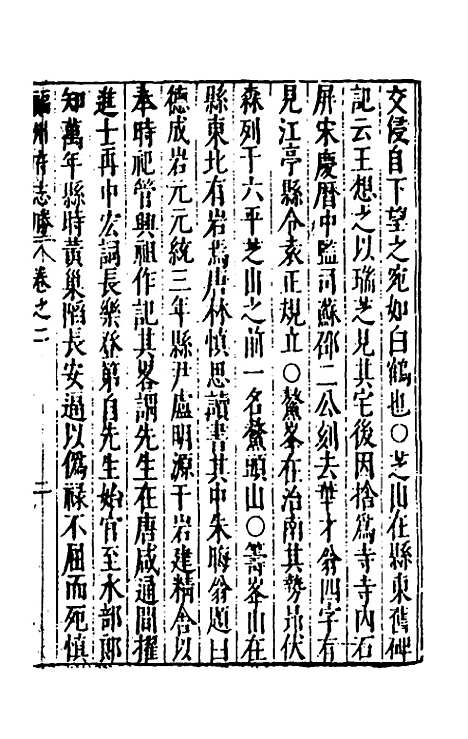 交侵自下望之宛如白鶴也〇芝山在縣東舊碑
記云王想之以瑞芝見其宅後因捨爲寺寺内石
屏宋慶曆中監司蘇邵二公刻去華才翁四字有
見江亭縣令袁正規立〇鰲峯在治南其勢昂伏
森列于六平芝山之前一名鰲頭山〇籌峯山在
縣東北有岩爲唐林慎思讀書其中朱晦翁題曰
德成岩元元統三年縣尹盧明源于岩建精舍以
奉時祀管興祖作記其畧謂先生在唐咸通間擢
進士再中宏詞長樂登第自先生始官至水部郎
知萬年縣時黃巢陷長安逼以僞祿不屈而死慎
福州府志勝 卷之二 二